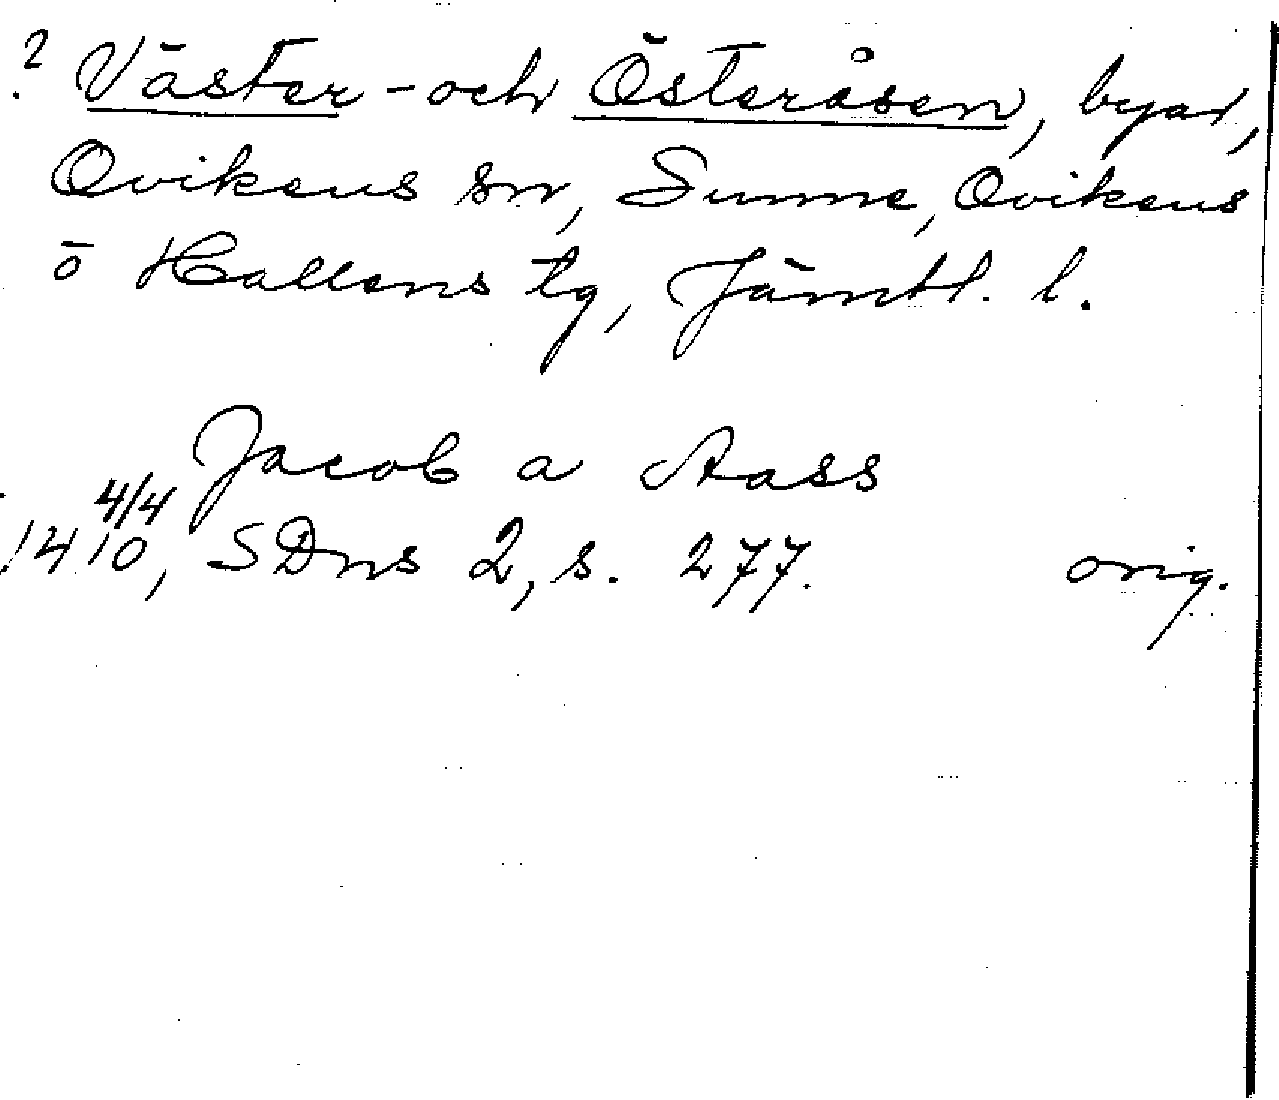 ? Väster- och Österåsen, byar,
Ovikens sn, Sunne, Ovikens
o Hallens tg, Jämtl. l.
Jacob a Aass
4/4
1410, SDns 2, s. 277. orig.